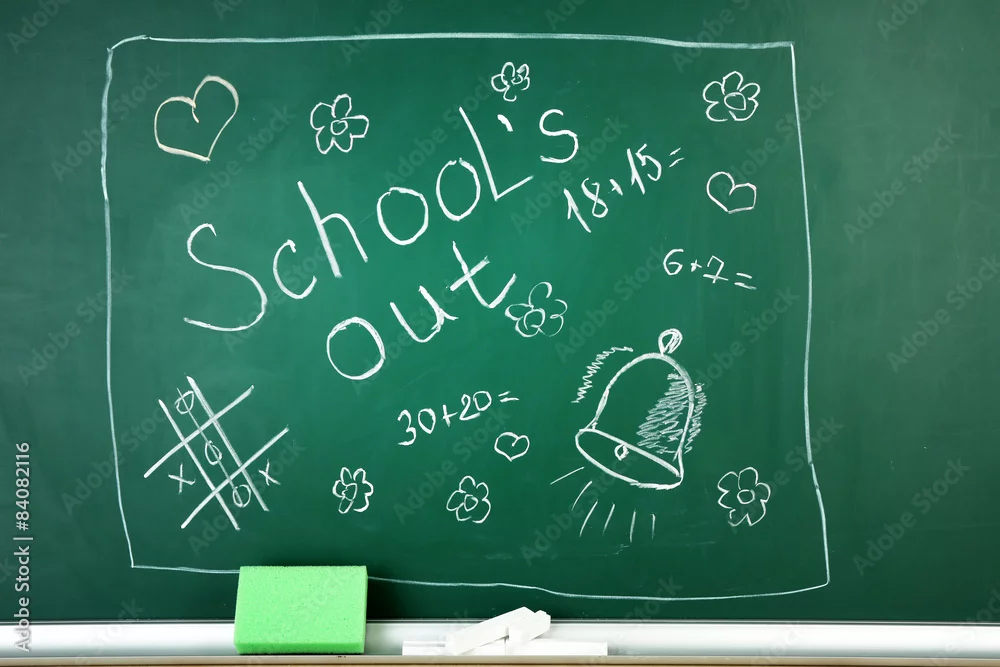 School's
out
18+15=
6+7=
30+20=
O
X O X
O
Adobe Stock | #84082116
Adobe Stock